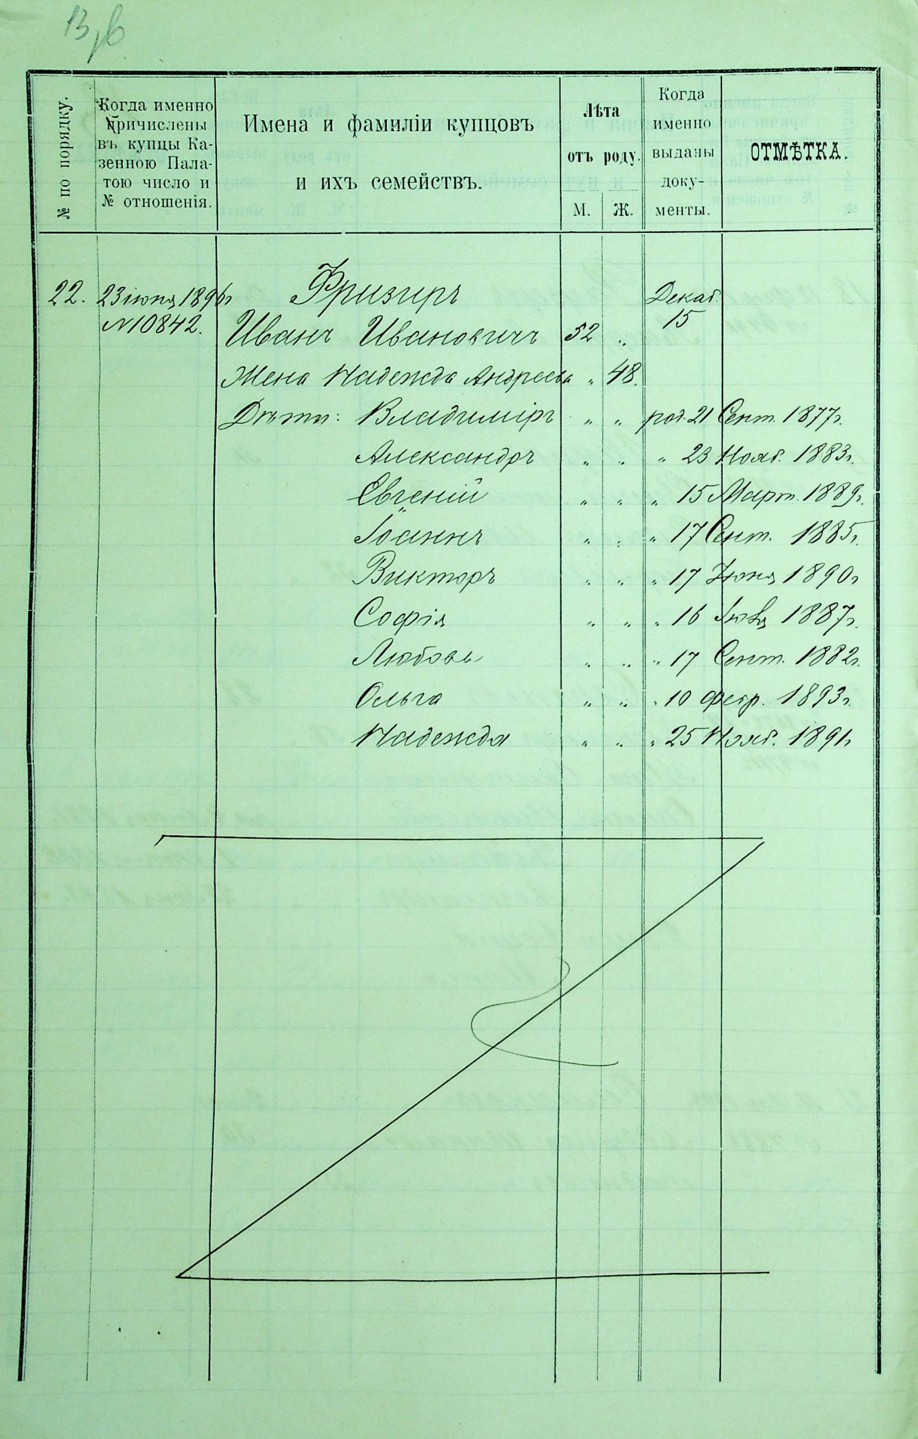 № по порядку.
Когда именно
причислены
въ купцы Ка-
зенною Пала-
тою число и
№ отношенія.
Имена и фамиліи купцовъ
и ихъ семействъ.
Лѣта
отъ роду.
М. Ж.
Когда
именно
выданы
доку-
менты.
ОТМѢТКА.
22. 23 іюня 1896 г Фризеръ Декаб.
№ 10842. Иванъ Ивановичъ 52 „ 15
Жена Надежда Андреева „ 48.
Дѣти: Владиміръ „ „ род. 21 Сент. 1877 г.
Александръ „ „ „ 23 Нояб. 1883 г.
Евгеній „ „ „ 15 Март. 1889 г.
Іоаннъ „ „ „ 17 Сент. 1885 г.
Викторъ „ „ „ 17 Іюня 1890 г
Софія „ „ „ 16 1887 г.
Любовь „ „ „ 17 Сент. 1882 г.
Ольга „ „ „ 10 февр. 1893 г.
Надежда „ „ „ 25 Нояб. 1891 г